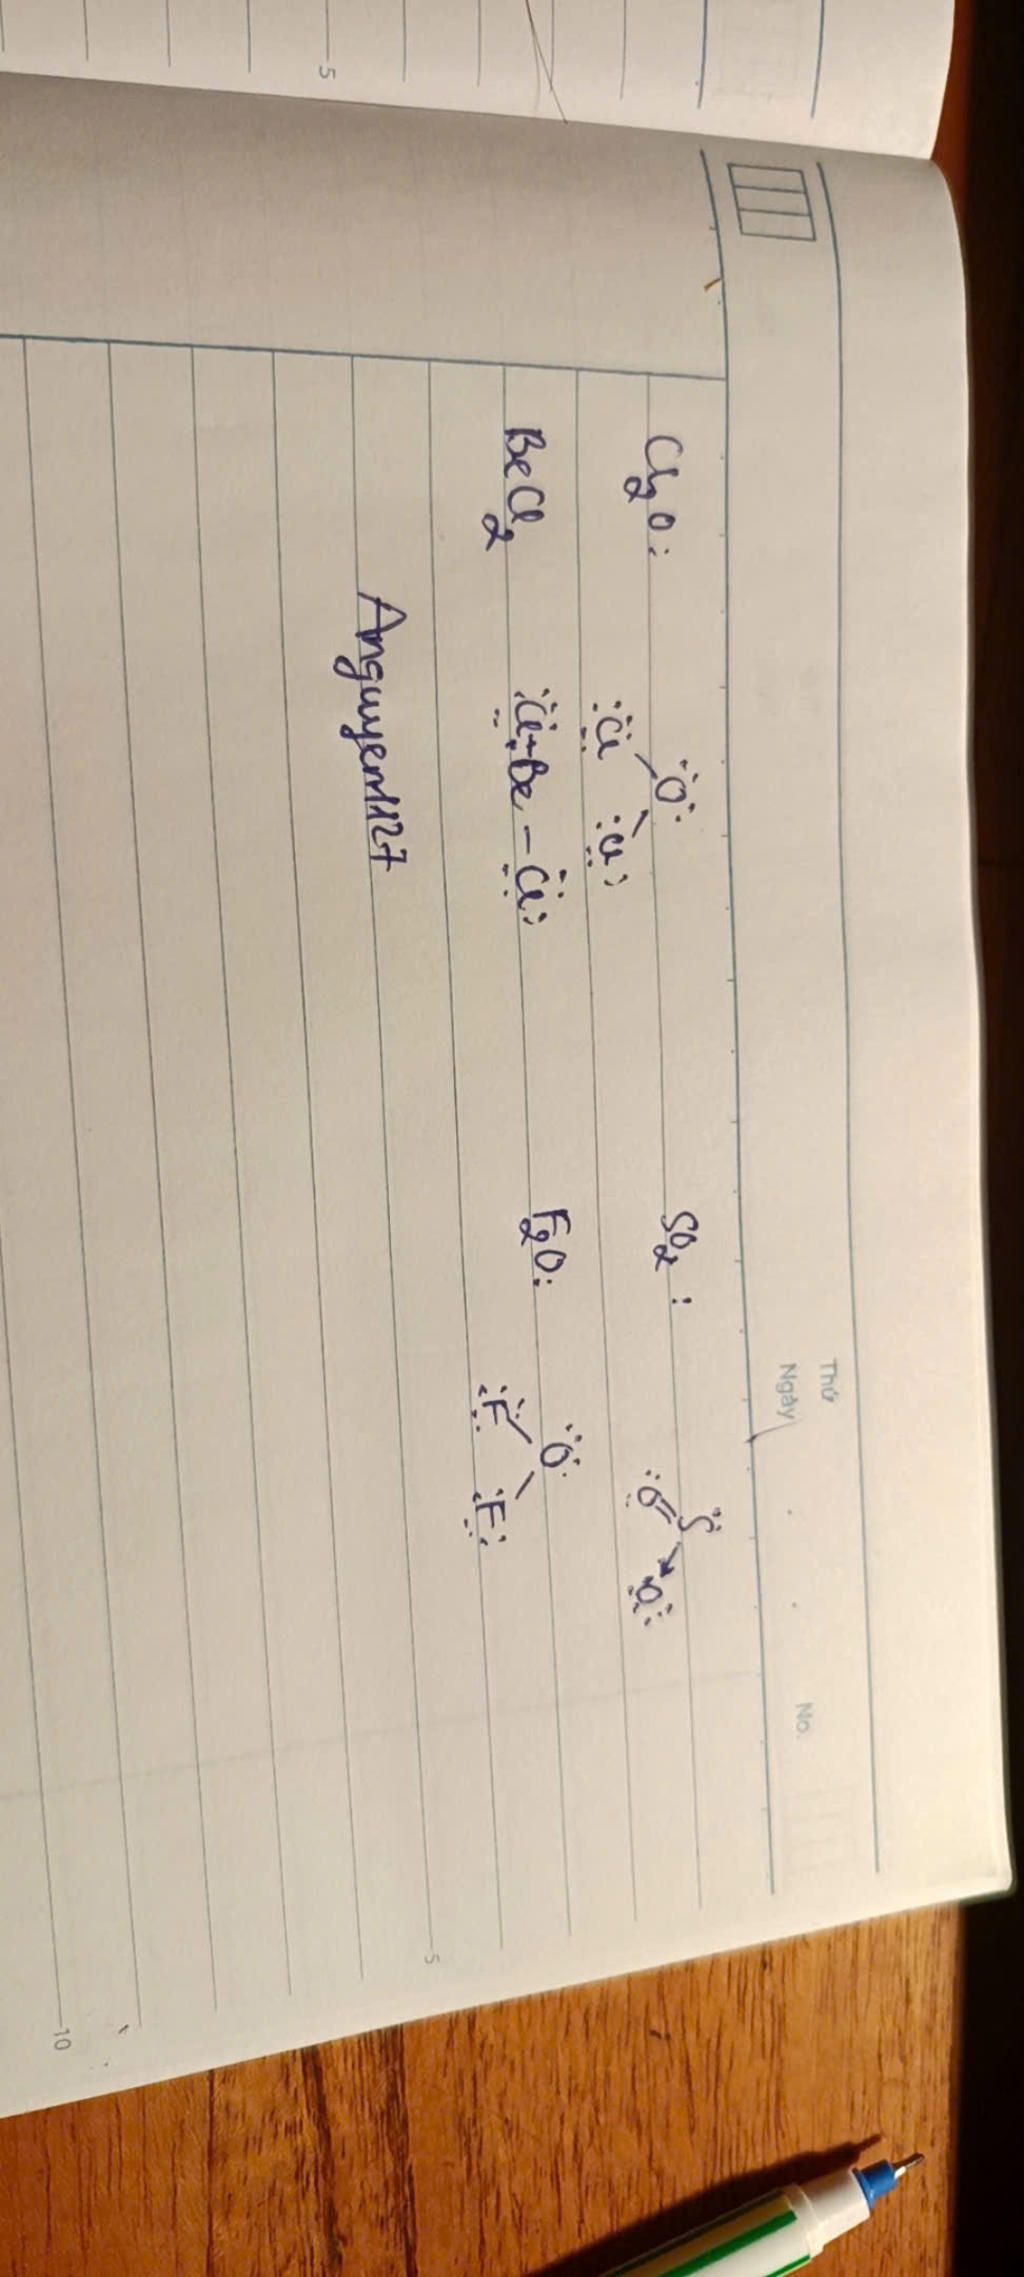 Thứ
Ngày
No.
Cl₂O: :Cl O: :Cl: SO₂: :O=S→O:
BeCl₂ :Cl-Be-Cl: F₂O: :F O: :F:
Anguyen1127
5
5
10